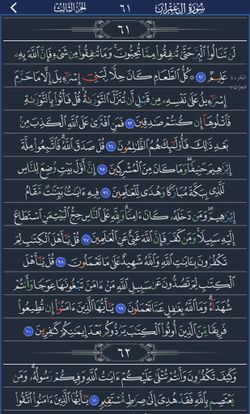 سُورَةُ آلِ عِمْرَانَ ٦١ الجُزْءُ الثَّالِثُ
٦١
لَن تَنَالُوا۟ ٱلْبِرَّ حَتَّىٰ تُنفِقُوا۟ مِمَّا تُحِبُّونَ ۚ وَمَا تُنفِقُوا۟ مِن شَىْءٍ فَإِنَّ ٱللَّهَ بِهِۦ
عَلِيمٌ ٩٢ كُلُّ ٱلطَّعَامِ كَانَ حِلًّا لِّبَنِىٓ إِسْرَٰٓءِيلَ إِلَّا مَا حَرَّمَ
إِسْرَٰٓءِيلُ عَلَىٰ نَفْسِهِۦ مِن قَبْلِ أَن تُنَزَّلَ ٱلتَّوْرَىٰةُ ۗ قُلْ فَأْتُوا۟ بِٱلتَّوْرَىٰةِ
فَٱتْلُوهَآ إِن كُنتُمْ صَٰدِقِينَ ٩٣ فَمَنِ ٱفْتَرَىٰ عَلَى ٱللَّهِ ٱلْكَذِبَ مِنۢ
بَعْدِ ذَٰلِكَ فَأُو۟لَٰٓئِكَ هُمُ ٱلظَّٰلِمُونَ ٩٤ قُلْ صَدَقَ ٱللَّهُ ۗ فَٱتَّبِعُوا۟ مِلَّةَ
إِبْرَٰهِيمَ حَنِيفًا وَمَا كَانَ مِنَ ٱلْمُشْرِكِينَ ٩٥ إِنَّ أَوَّلَ بَيْتٍ وُضِعَ لِلنَّاسِ
لَلَّذِى بِبَكَّةَ مُبَارَكًا وَهُدًى لِّلْعَٰلَمِينَ ٩٦ فِيهِ ءَايَٰتٌۢ بَيِّنَٰتٌ مَّقَامُ
إِبْرَٰهِيمَ ۖ وَمَن دَخَلَهُۥ كَانَ ءَامِنًا ۗ وَلِلَّهِ عَلَى ٱلنَّاسِ حِجُّ ٱلْبَيْتِ مَنِ ٱسْتَطَاعَ
إِلَيْهِ سَبِيلًا ۚ وَمَن كَفَرَ فَإِنَّ ٱللَّهَ غَنِىٌّ عَنِ ٱلْعَٰلَمِينَ ٩٧ قُلْ يَٰٓأَهْلَ ٱلْكِتَٰبِ لِمَ
تَكْفُرُونَ بِـَٔايَٰتِ ٱللَّهِ وَٱللَّهُ شَهِيدٌ عَلَىٰ مَا تَعْمَلُونَ ٩٨ قُلْ يَٰٓأَهْلَ
ٱلْكِتَٰبِ لِمَ تَصُدُّونَ عَن سَبِيلِ ٱللَّهِ مَنْ ءَامَنَ تَبْغُونَهَا عِوَجًا وَأَنتُمْ
شُهَدَآءُ ۗ وَمَا ٱللَّهُ بِغَٰفِلٍ عَمَّا تَعْمَلُونَ ٩٩ يَٰٓأَيُّهَا ٱلَّذِينَ ءَامَنُوٓا۟ إِن تُطِيعُوا۟
فَرِيقًا مِّنَ ٱلَّذِينَ أُوتُوا۟ ٱلْكِتَٰبَ يَرُدُّوكُم بَعْدَ إِيمَٰنِكُمْ كَٰفِرِينَ ١٠٠
٦٢
وَكَيْفَ تَكْفُرُونَ وَأَنتُمْ تُتْلَىٰ عَلَيْكُمْ ءَايَٰتُ ٱللَّهِ وَفِيكُمْ رَسُولُهُۥ ۗ وَمَن
يَعْتَصِم بِٱللَّهِ فَقَدْ هُدِىَ إِلَىٰ صِرَٰطٍ مُّسْتَقِيمٍ ١٠١ يَٰٓأَيُّهَا ٱلَّذِينَ ءَامَنُوا۟ ٱتَّقُوا۟